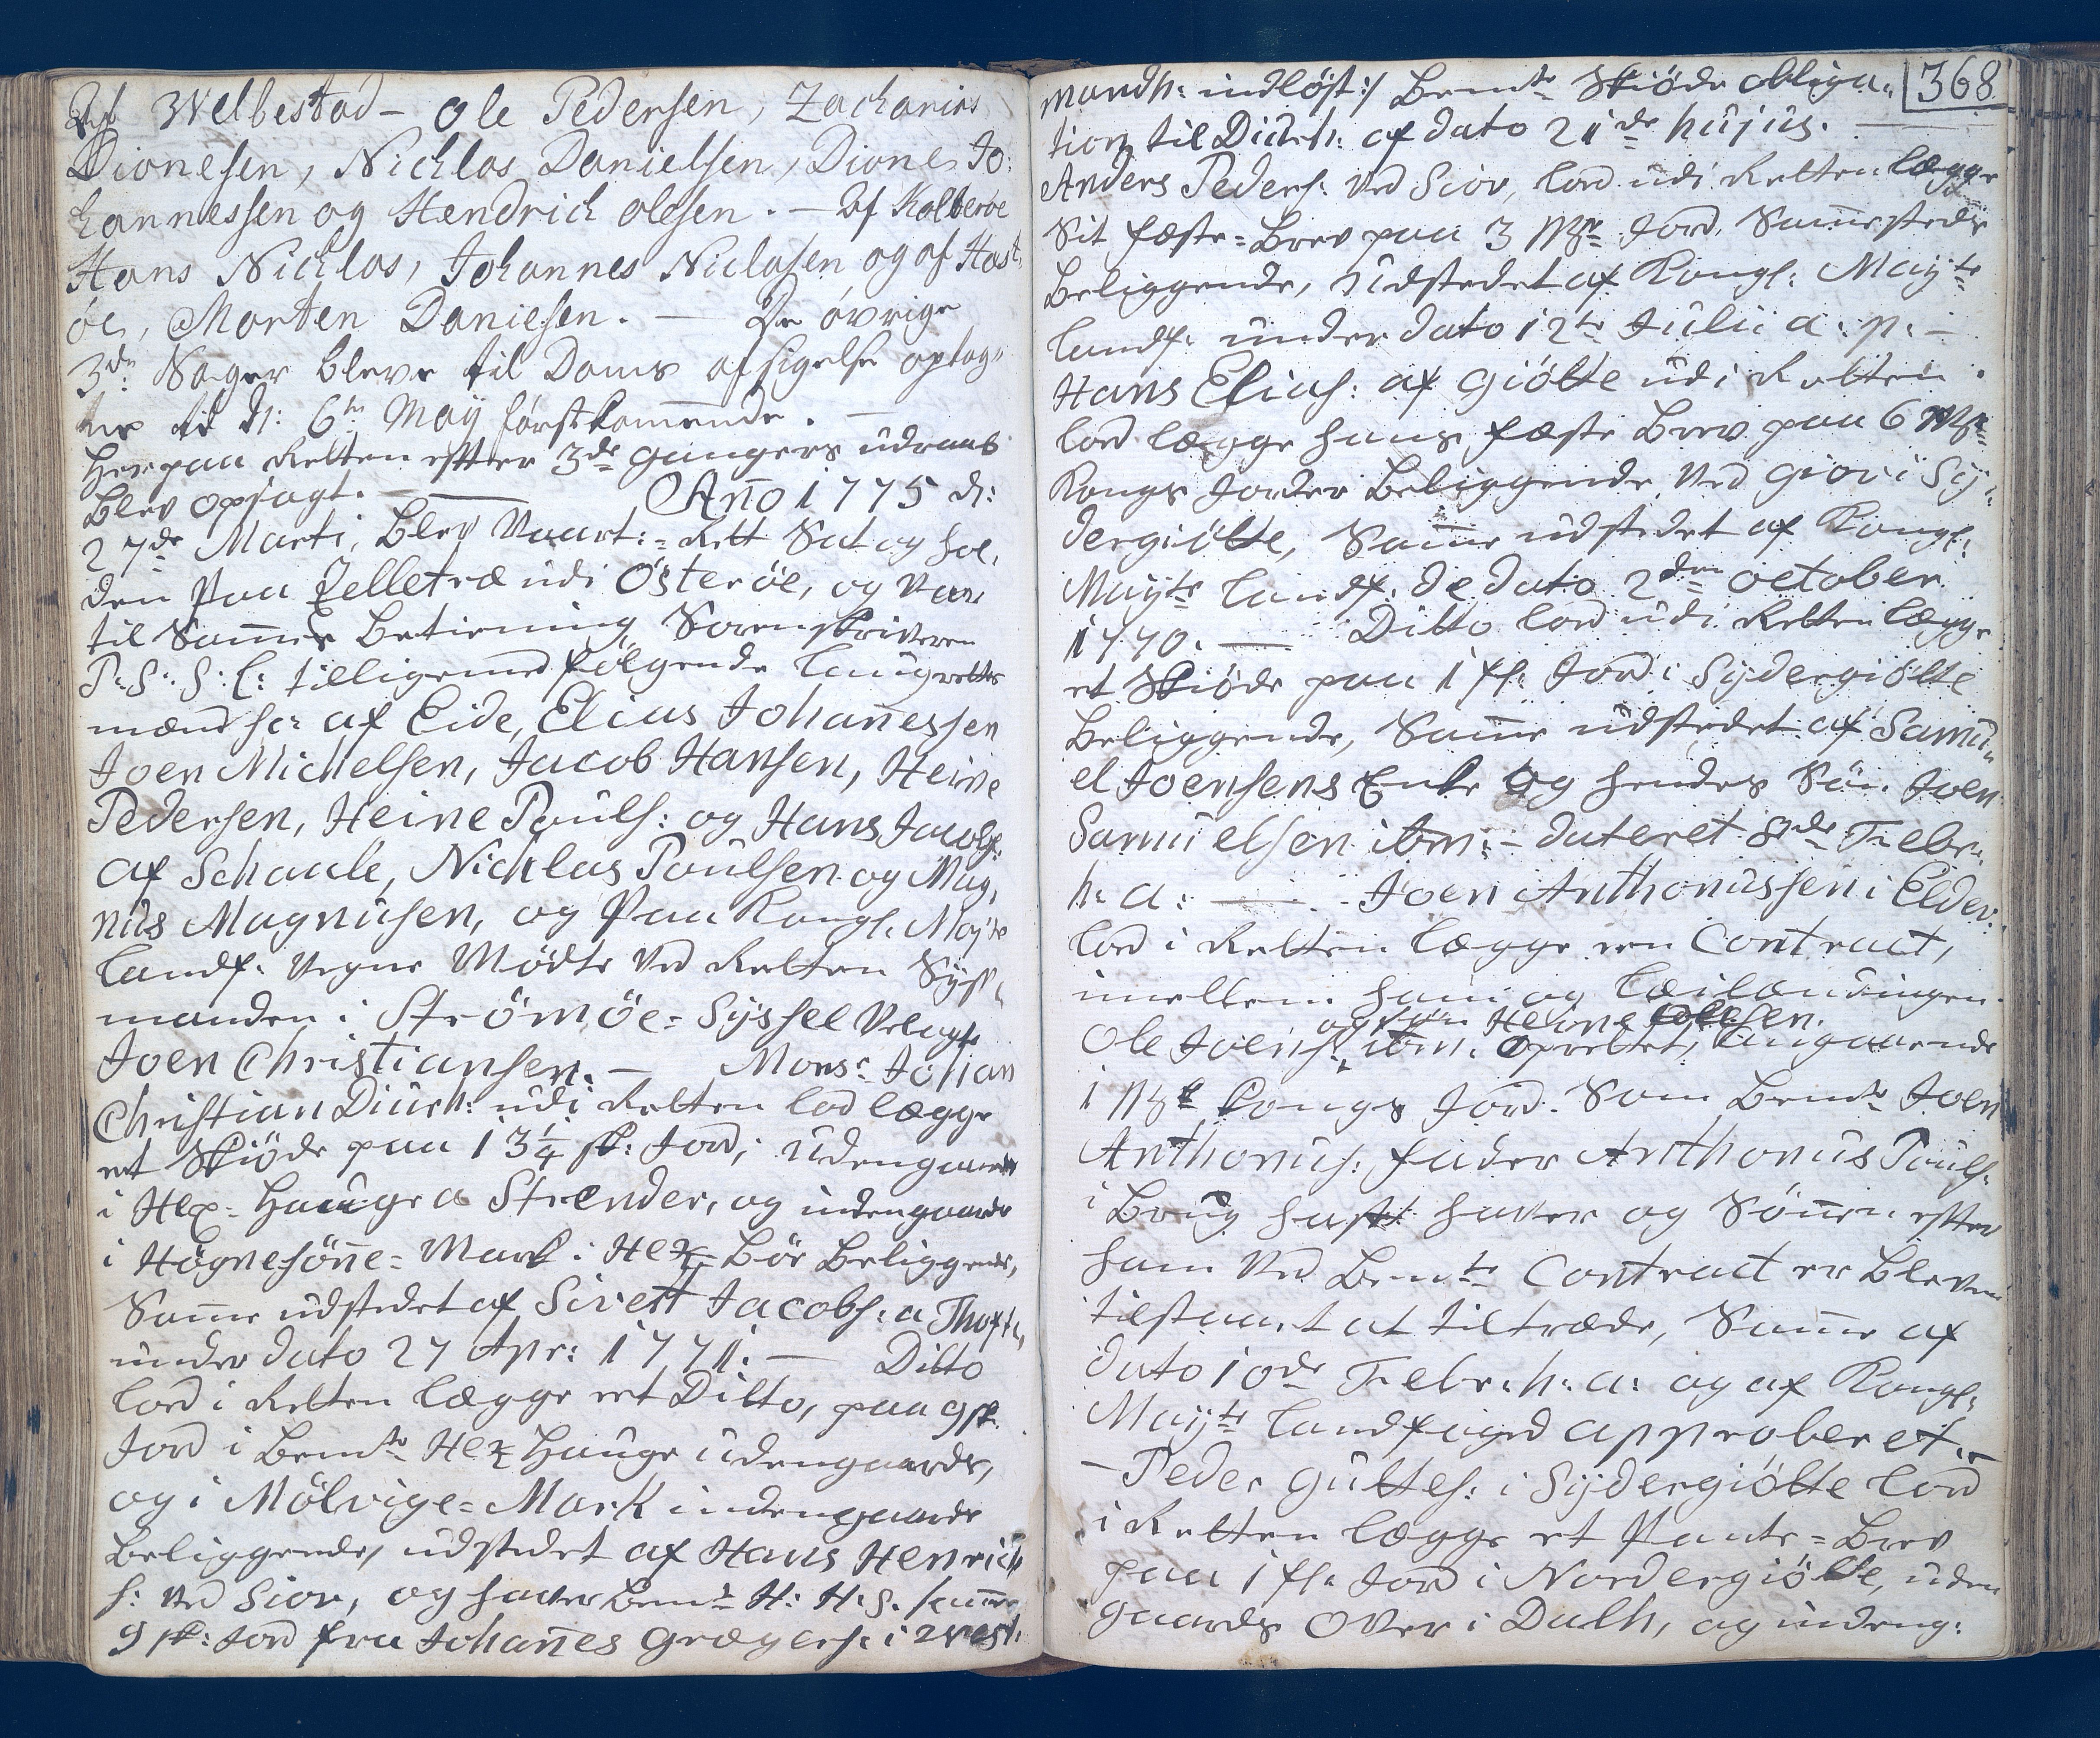 Af Welbestad - Ole Pedersen, Zacharias
Dionesen, Nichlas Danielsen, Dione Jo:
hannessen og Hendrich olesen. - Af Kolterøe
Hans Nichlas, Johannes Niclasen og af Hest,
öe, Morten Danielsen. - De övrige
3de Sager bleve til Doms afsigelse optag"
ne til d: 6te Maÿ förstkommende. -
Herpaa Retten efter 3de ganges udraab
blev opsagt. - Anno 1775 d:
27de Marti, blev Vaart:=Rett Sat og hol,
den paa Selletræ udi Österöe, og var
til Samme betiening Sorenskriveren
P: S: S: L: tilligemed fölgende laugrettes
mænd sc: af Eide, Elias Johannessen
Joen Michelsen, Jacob Hansen, Heine
Pedersen, Heine Pouls: og Hans Jacobs:
af Schaale, Nichlas Poulsen og Mag,
nus Magnusen, og paa Kongl. Mayts
landf: vegne Mödte ved Retten Syss,
manden i Strömöe=Sÿssel Velagte
Joen Christiansen. - Monsr Johan
Christian Diurh: udi Retten lod lægge
et Skiöde paa 13¼ sk: Jord, udengaards
i Hex=Hauge a Strender, og indengaards
i Högnesönne=Mark i Hex=Böe beliggende,
Samme udstedet af Sivert Jacobs: a Thofte,
under dato 27 Apr: 1771. - Ditto
lod i Retten lægge et Ditto, paa 9 sk.
Jord i bemte Hex Hauge udengaards,
og i Mölvige=Mark indengaards
beliggende, udstedet af Hans Henrich
s: ved Siov, og haver bemte H: H: S: samme
9 sk: Jord fra Johannes Grægers: i Vest:
368
mandh: indlöst:/ bemte Skiöde obliga"
tion til Diurh: af dato 21de hujus. -
Anders Peders: ved Siov, lod udi Retten lægge
Sit fæste=brev paa 3 Mrk Jord, Sammesteds
beliggende, udstedet af Kongl: Mayts
landf: under dato 12te Julii a: p: -
Hans Elias: af Giötte udi Retten
lod lægge hans fæste brev paa 6 Mrk
Kongs Jorder beliggende ved Giov i Sÿ,
dergiötte, Samme udstedet af Kongl:
Mayts landf: de dato 2den october
1770. - Ditto lod udi Retten lægge
et Skiöde paa 1 sk: Jord i Sÿdergiötte
beliggende, Samme udstedet af Samu"
el Joensens Enke og hendes Sön Joen
Samuelsen ibm: - dateret 8de Febr:
h: a: - Joen Anthonussen i Elder:
lod i Retten lægge een Contract,
imellem ham og Leilændingen
og Sön Heine Olesen.
Ole Joens: ibm: oprettet, angaaende
1 Mrk Kongs Jord. Som bemte Joen
Anthonus: fader Anthonus Pouls:
i brug haft haver og Sönnen efter
ham ved bemte Contract er bleven
tilstaaet at tiltræde, Samme af
dato 10de Febr: h: a: og af Kongl:
Mayts landfoged approberet. -
- Peder Guttes: i Sÿdergiötte lod
i Retten lægge et Pante=brev
paa 1 sk: Jord i Nordergiötte, uden
gaards over i Dalh, og indeng: